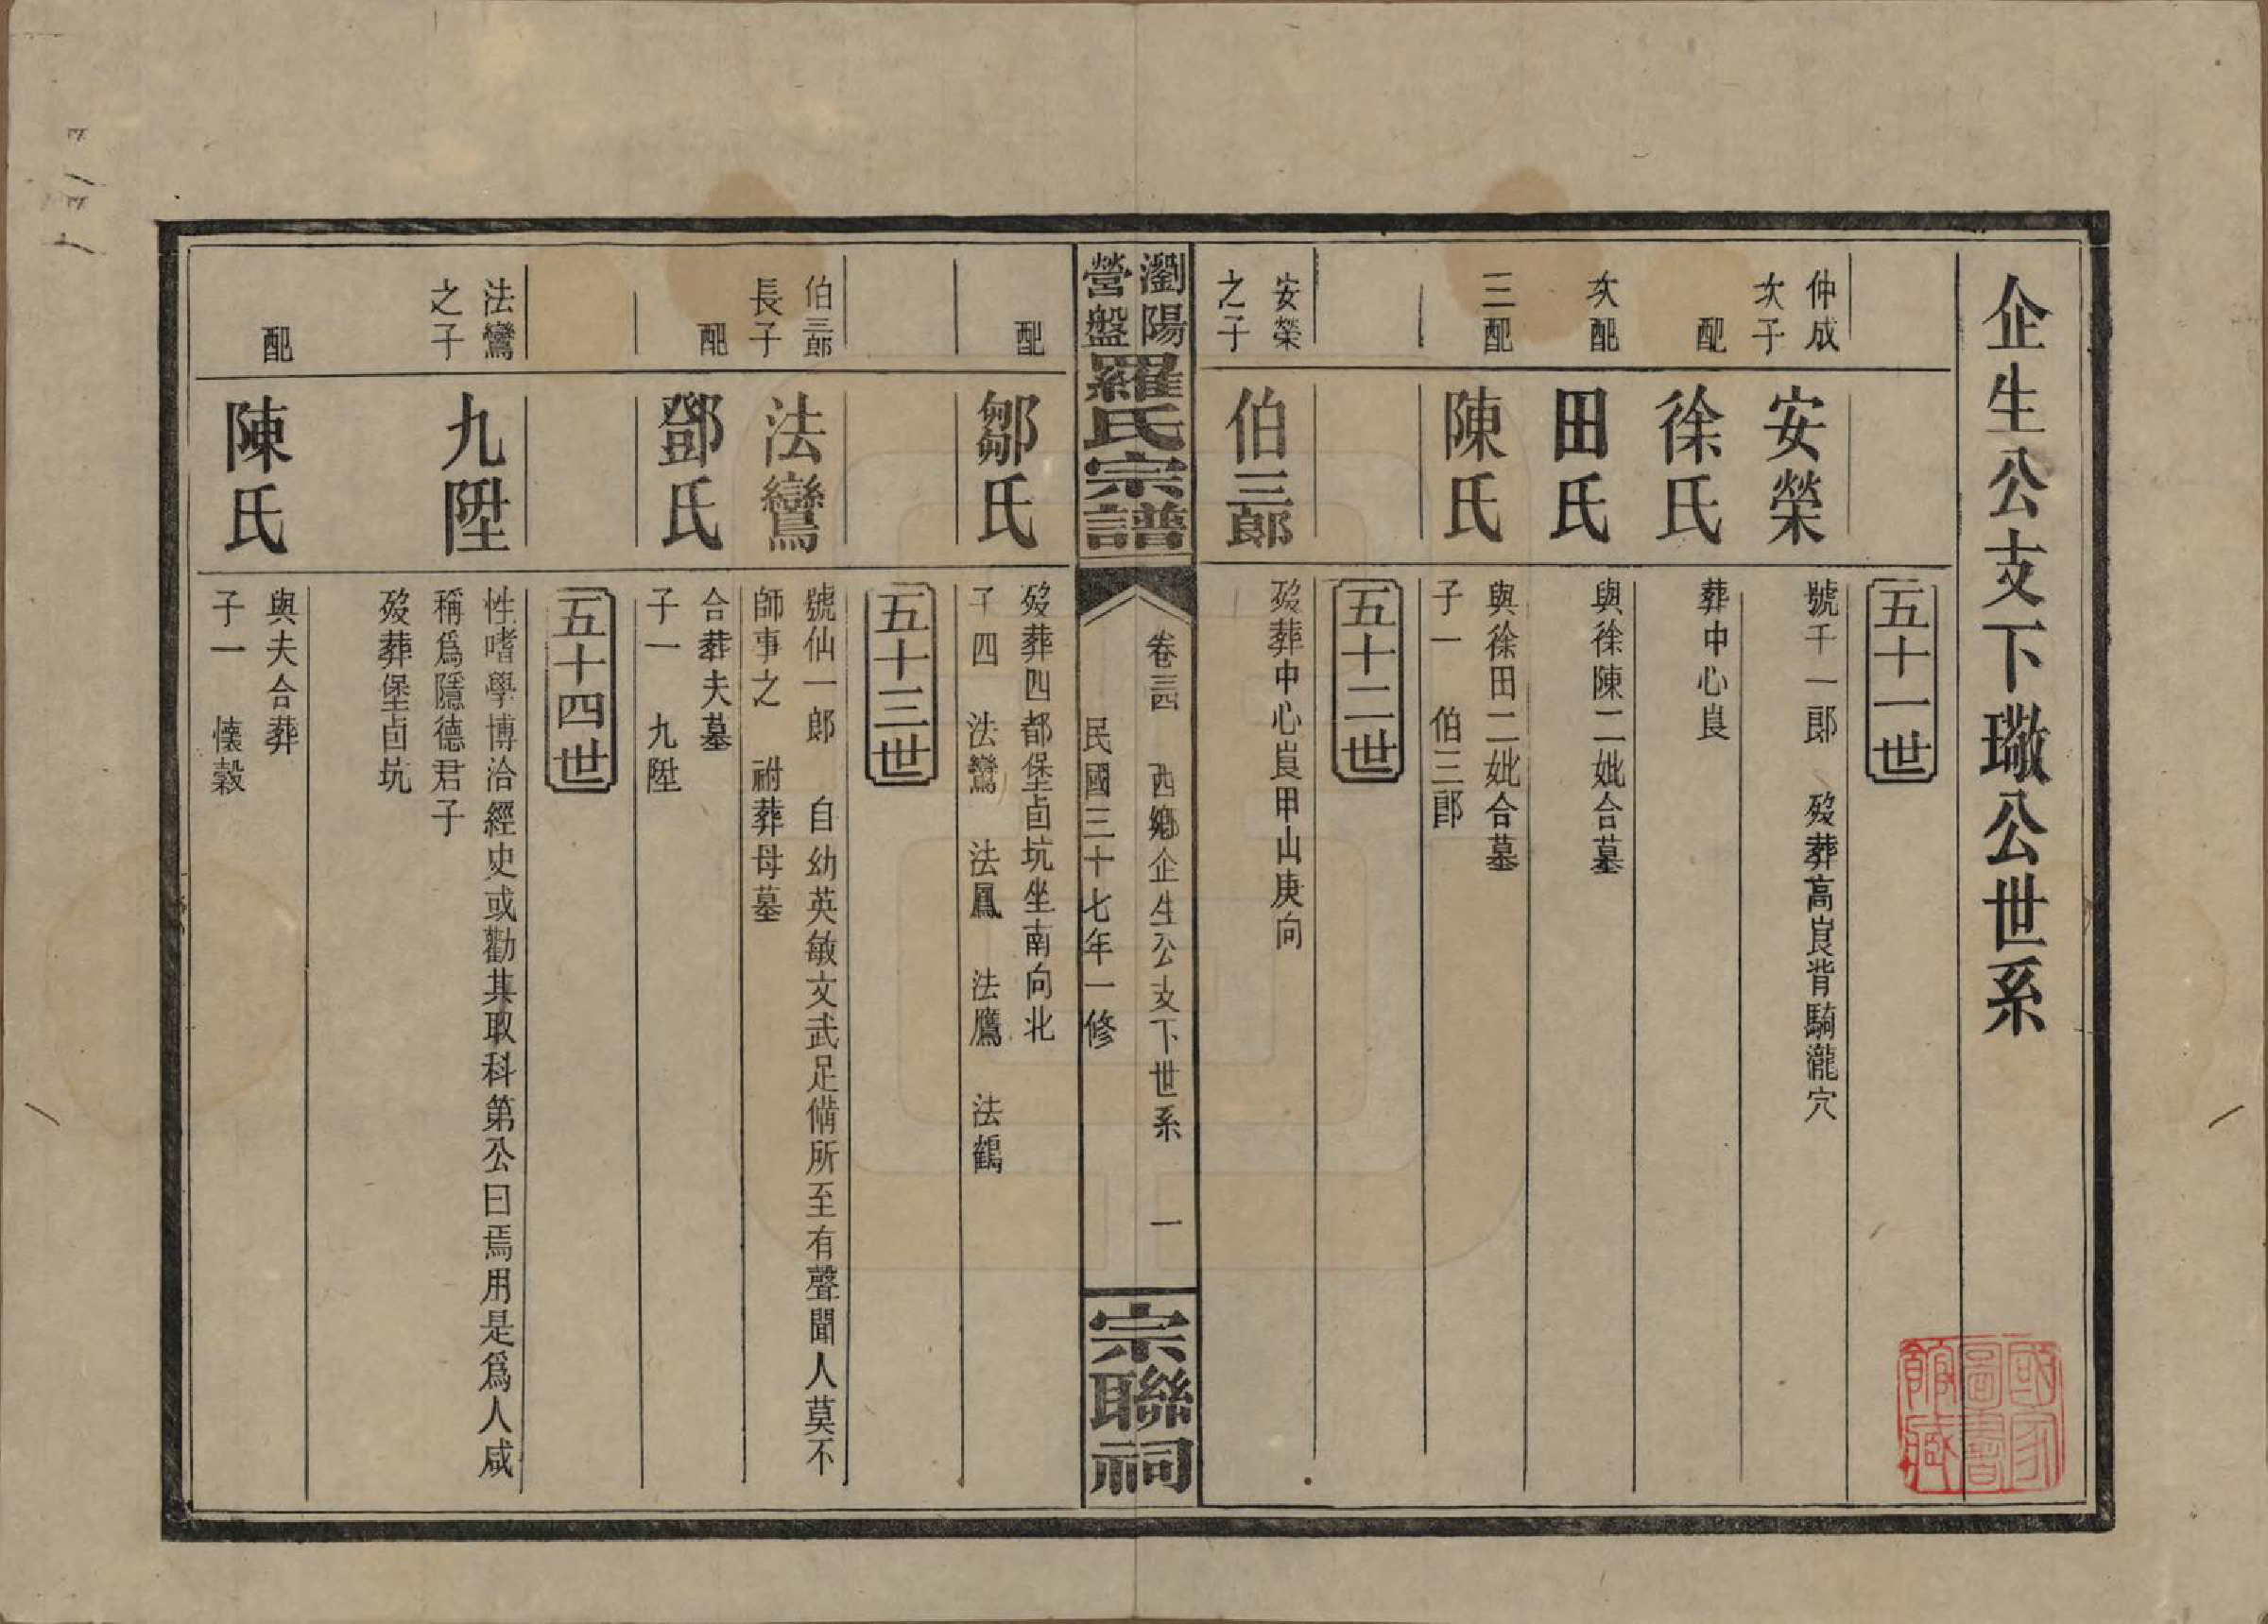 企生公支下璥公世系
五十一世
仲成
次子
安榮
號千一郎 歿葬高崀背騎瀧穴
配
徐氏
葬中心崀
次配
田氏
與徐陳二妣合墓
三配
陳氏
與徐田二妣合墓
子一 伯三郎
五十二世
安榮
之子
伯三郎
歿葬中心崀甲山庚向
瀏陽
營盤
羅氏宗譜
卷三四 西鄉企生公支下世系 一
民國三十七年一修
宗聯祠
配
鄒氏
歿葬四都堡卣坑坐南向北
子四 法鸞 法鳳 法鷹 法鶴
五十三世
伯三郎
長子
法鸞
號仙一郎 自幼英敏文武足備所至有聲聞人莫不
師事之 祔葬母墓
配
鄧氏
合葬夫墓
子一 九陞
五十四世
法鸞
之子
九陞
性嗜學博洽經史或勸其取科第公曰焉用是爲人咸
稱爲隱德君子
歿葬堡卣坑
配
陳氏
與夫合葬
子一 懐穀
國家
圖書
館藏